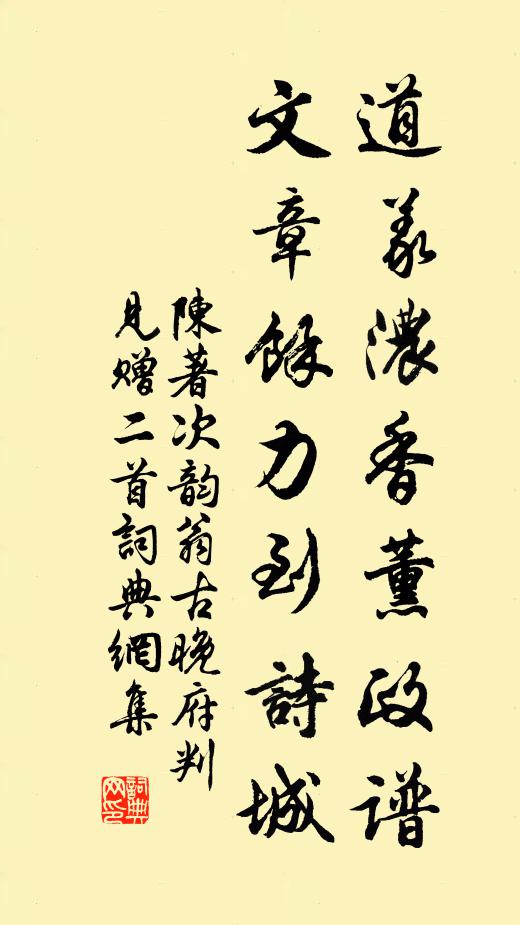 道義濃香薰政谱
文章餘力到詩城
陳著次韵翁古晚府判
見赠二首詞典網集
詞典
网印